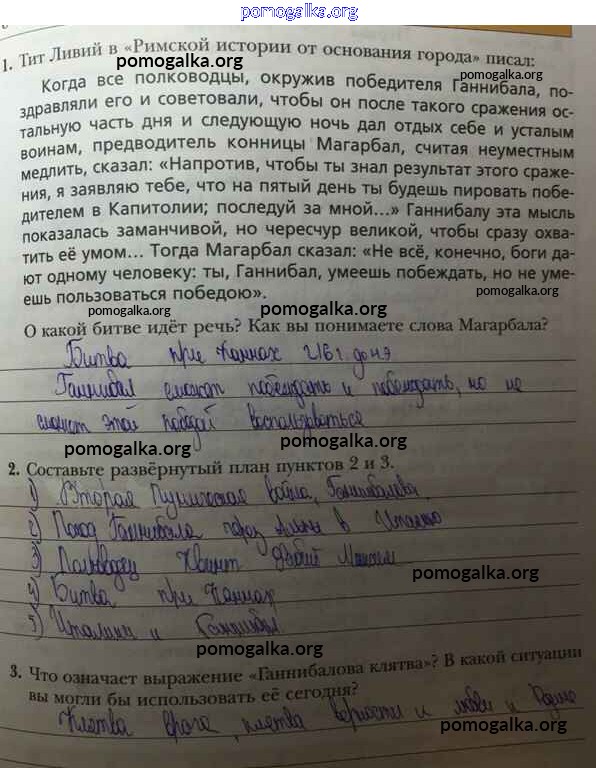 pomogalka.org
1. Тит Ливий в «Римской истории от основания города» писал:
pomogalka.org pomogalka.org
Когда все полководцы, окружив победителя Ганнибала, по-
здравляли его и советовали, чтобы он после такого сражения ос-
тальную часть дня и следующую ночь дал отдых себе и усталым
воинам, предводитель конницы Магарбал, считая неуместным
медлить, сказал: «Напротив, чтобы ты знал результат этого сраже-
pomogalka.org pomogalka.org
ния, я заявляю тебе, что на пятый день ты будешь пировать побе-
дителем в Капитолии; последуй за мной...» Ганнибалу эта мысль
показалась заманчивой, но чересчур великой, чтобы сразу охва-
pomogalka.org
тить её умом... Тогда Магарбал сказал: «Не всё, конечно, боги да-
ют одному человеку: ты, Ганнибал, умеешь побеждать, но не уме-
ешь пользоваться победою».
pomogalka.org
pomogalka.org pomogalka.org
О какой битве идёт речь? Как вы понимаете слова Магарбала?
Битва при Каннах 216 г. до нэ
Ганнибал сможет побеждать и побеждать, но не
сможет этой победой воспользоваться
pomogalka.org pomogalka.org
2. Составьте развёрнутый план пунктов 2 и 3.
1) Вторая Пуническая война, Ганнибалова
2) Поход Ганнибала через Альпы в Италию
3) Полководец Квинт Фабий Максим
pomogalka.org
4) Битва при Каннах
5) Италики и Ганнибал
pomogalka.org
3. Что означает выражение «Ганнибалова клятва»? В какой ситуации
вы могли бы использовать её сегодня?
Клятва врага, клятва верности и любви к Родине
pomogalka.org
pomogalka.org